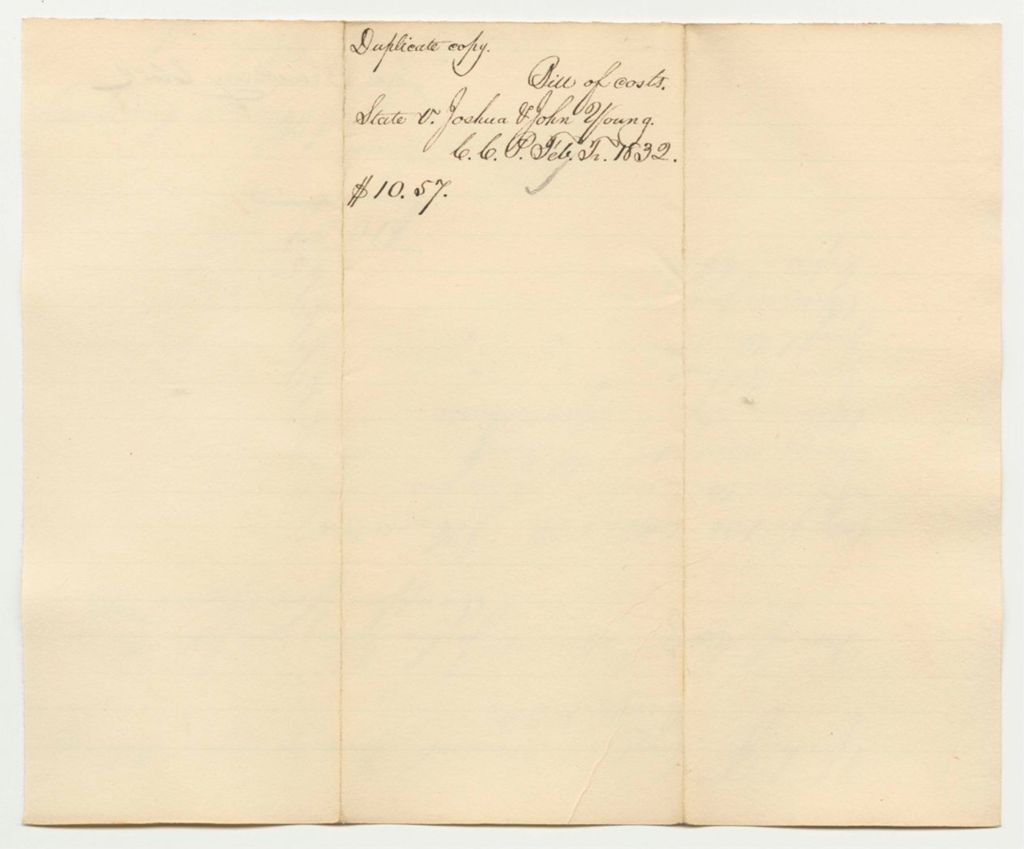 Duplicate copy.
Bill of costs.
State v. Joshua & John Young.
C. C. P. Feb. Tr. 1832.
$10.57.